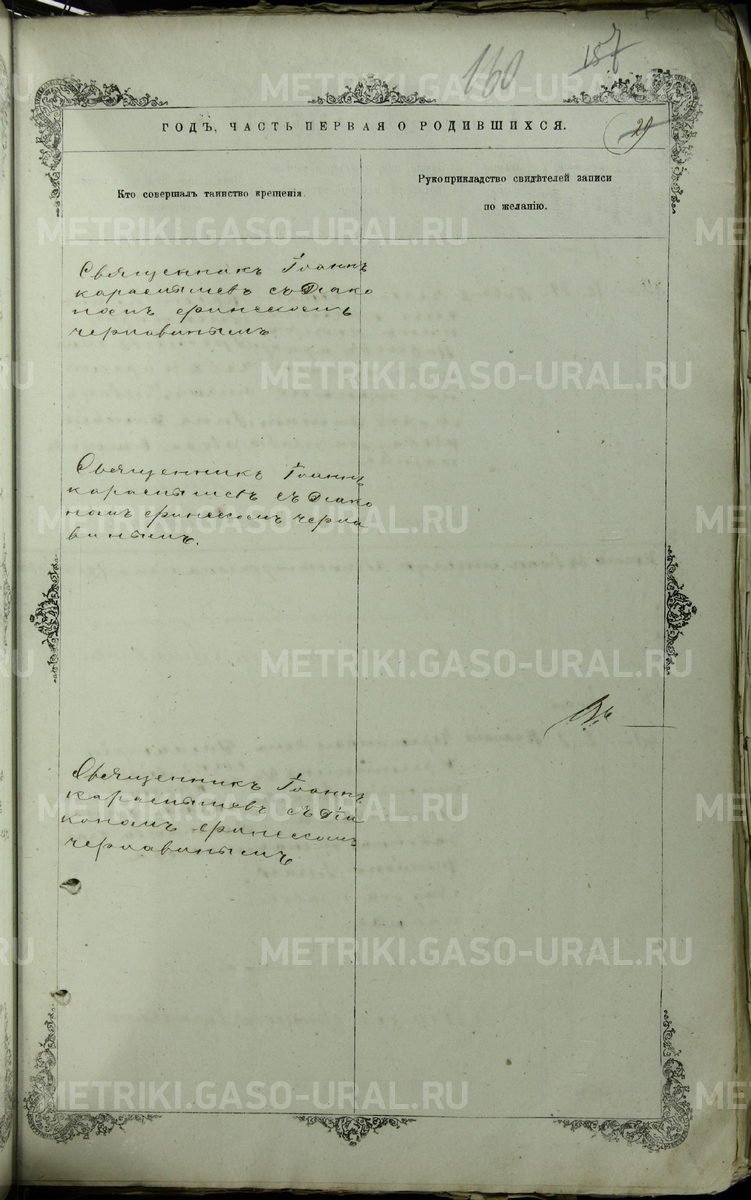 160 157
ГОДЪ, ЧАСТЬ ПЕРВАЯ О РОДИВШИХСЯ.
29
Кто совершалъ таинство крещенія.
Рукоприкладство свидѣтелей записи
по желанію.
Священникъ Іоаннъ
Карасышевъ съ Діако
номъ
Чернавинымъ
Священникъ Іоаннъ
Карасышевъ съ Діако
номъ Черна
винымъ.
Священникъ Іоаннъ
Карасышевъ съ Діа
кономъ
Чернавинымъ
METRIKI.GASO-URAL.RU